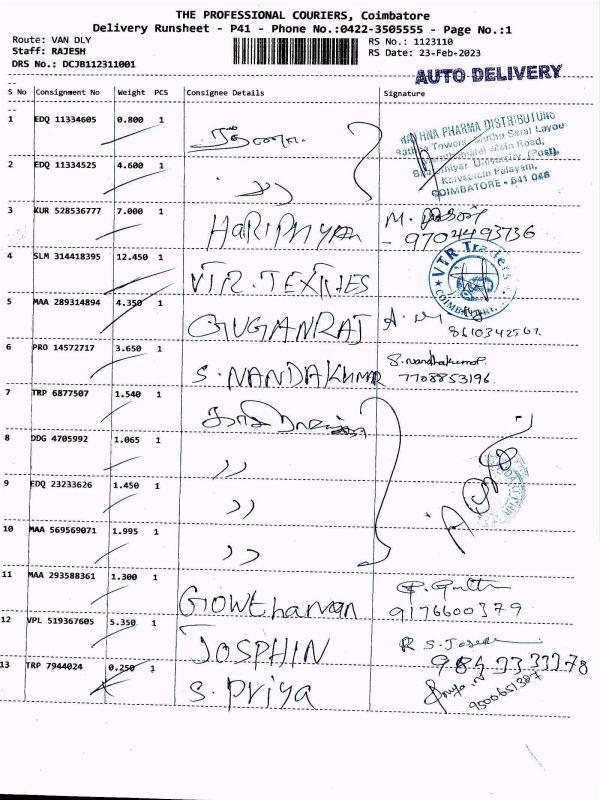 THE PROFESSIONAL COURIERS, Coimbatore
Delivery Runsheet - P41 - Phone No.:0422-3505555 - Page No.:1
Route: VAN DLY
RS No.: 1123110
Staff: RAJESH
RS Date: 23-Feb-2023
DRS No.: DCJB112311001
AUTO DELIVERY
S No Consignment No Weight PCS Consignee Details Signature
1 EDQ 11334605 0.800 1
RATHNA PHARMA DISTRIBUTORS
COIMBATORE - 641 046
2 EDQ 11334525 4.600 1 ))
3 KUR 528536777 7.000 1 HARIPRIYAN M.
4 SLM 314418395 12.450 1 VTR. TEXTILES VTR Traders COIMBATORE
5 MAA 289314894 4.350 1 GUGANRAJ
6 PRO 14572717 3.650 1 S. NANDAKUMAR S. nandhakumar.
7708853196
7 TRP 6877507 1.540 1
8 DDG 4705992 1.065 1 ))
9 EDQ 23233626 1.450 1 ))
10 MAA 569569071 1.995 1 ))
11 MAA 293588361 1.300 1 Gowthaman
9176600379
12 VPL 519367605 5.350 1 JOSPHIN
13 TRP 7944024 0.250 1 S. Priya